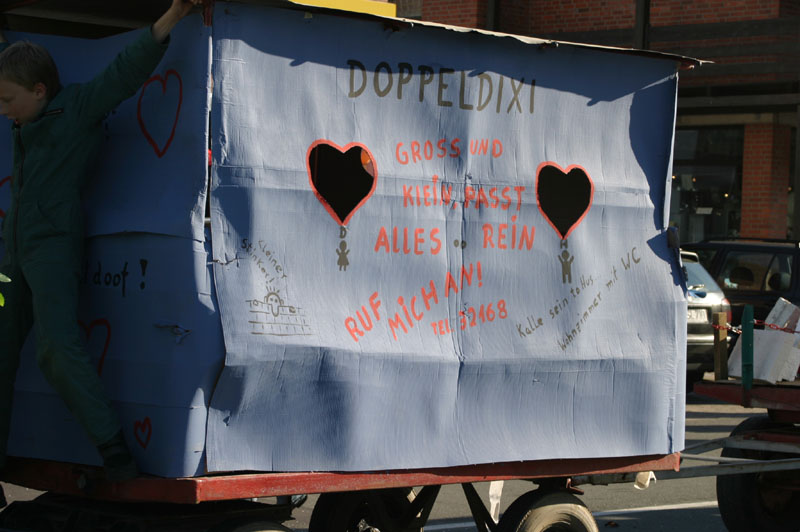 DOPPELDIXI
GROSS UND
KLEIN, PASST
ALLES REIN
D
H
Kleiner
Stinker!
RUF MICH AN!
TEL 52168
Kalle sein tolles
Wohnzimmer mit WC
doof!